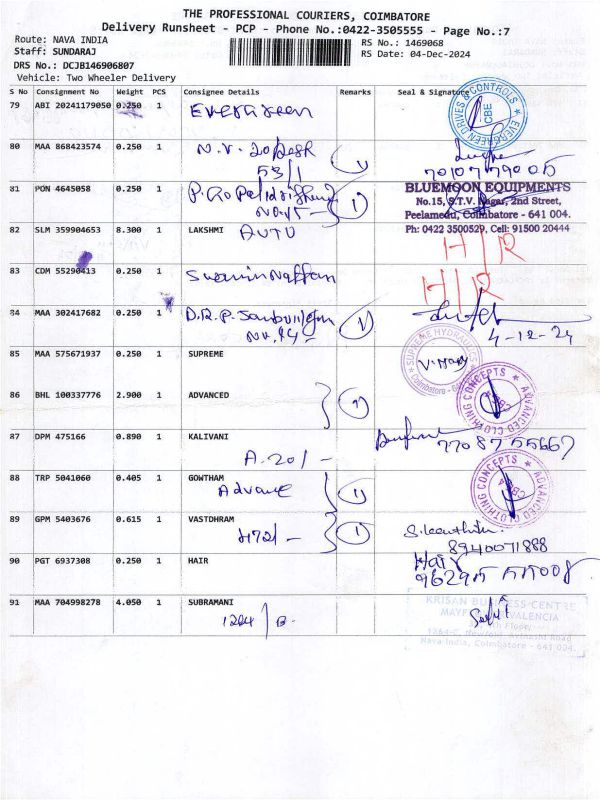 THE PROFESSIONAL COURIERS, COIMBATORE
Delivery Runsheet - PCP - Phone No.:0422-3505555 - Page No.:7
Route: NAVA INDIA
RS No.: 1469068
Staff: SUNDARAJ
RS Date: 04-Dec-2024
DRS No.: DCJB146906807
Vehicle: Two Wheeler Delivery
S No Consignment No Weight PCS Consignee Details Remarks Seal & Signature
79 ABI 20241179050 0.250 1 Evergreen
EVERGREEN DRIVES & CONTROLS CBE
80 MAA 868423574 0.250 1
53/1
81 PON 4645058 0.250 1
BLUEMOON EQUIPMENTS
No.15, S.T.V. Nagar, 2nd Street,
Peelamedu, Coimbatore - 641 004.
Ph: 0422 3500529, Cell: 91500 20444
82 SLM 359904653 8.300 1 LAKSHMI AUTO
H/R
83 CDM 55290413 0.250 1
H/R
84 MAA 302417682 0.250 1
4-12-24
85 MAA 575671937 0.250 1 SUPREME
SUPREME HYDRAULICS Coimbatore
86 BHL 100337776 2.900 1 ADVANCED
ADVANCED CLOTHING CONCEPTS
87 DPM 475166 0.890 1 KALIVANI
7708755667
A.20/-
88 TRP 5041060 0.405 1 GOWTHAM
Advance
ADVANCED CLOTHING CONCEPTS
89 GPM 5403676 0.615 1 VASTDHRAM
472/-
8940071888
90 PGT 6937308 0.250 1 HAIR
Hair
91 MAA 704998278 4.050 1 SUBRAMANI
1264/B-
KRISAN BUSINESS CENTRE
MAYFLOWER VALENCIA
Floor
Avinashi Road
Nava India, Coimbatore - 641 004.